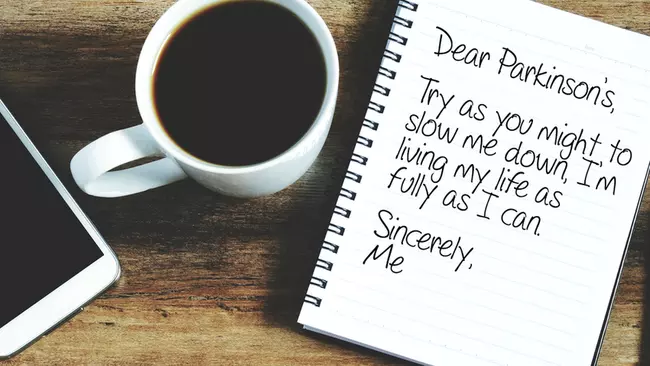 Dear Parkinson's,
Try as you might to
slow me down, I'm
living my life as
fully as I can.
Sincerely,
Me